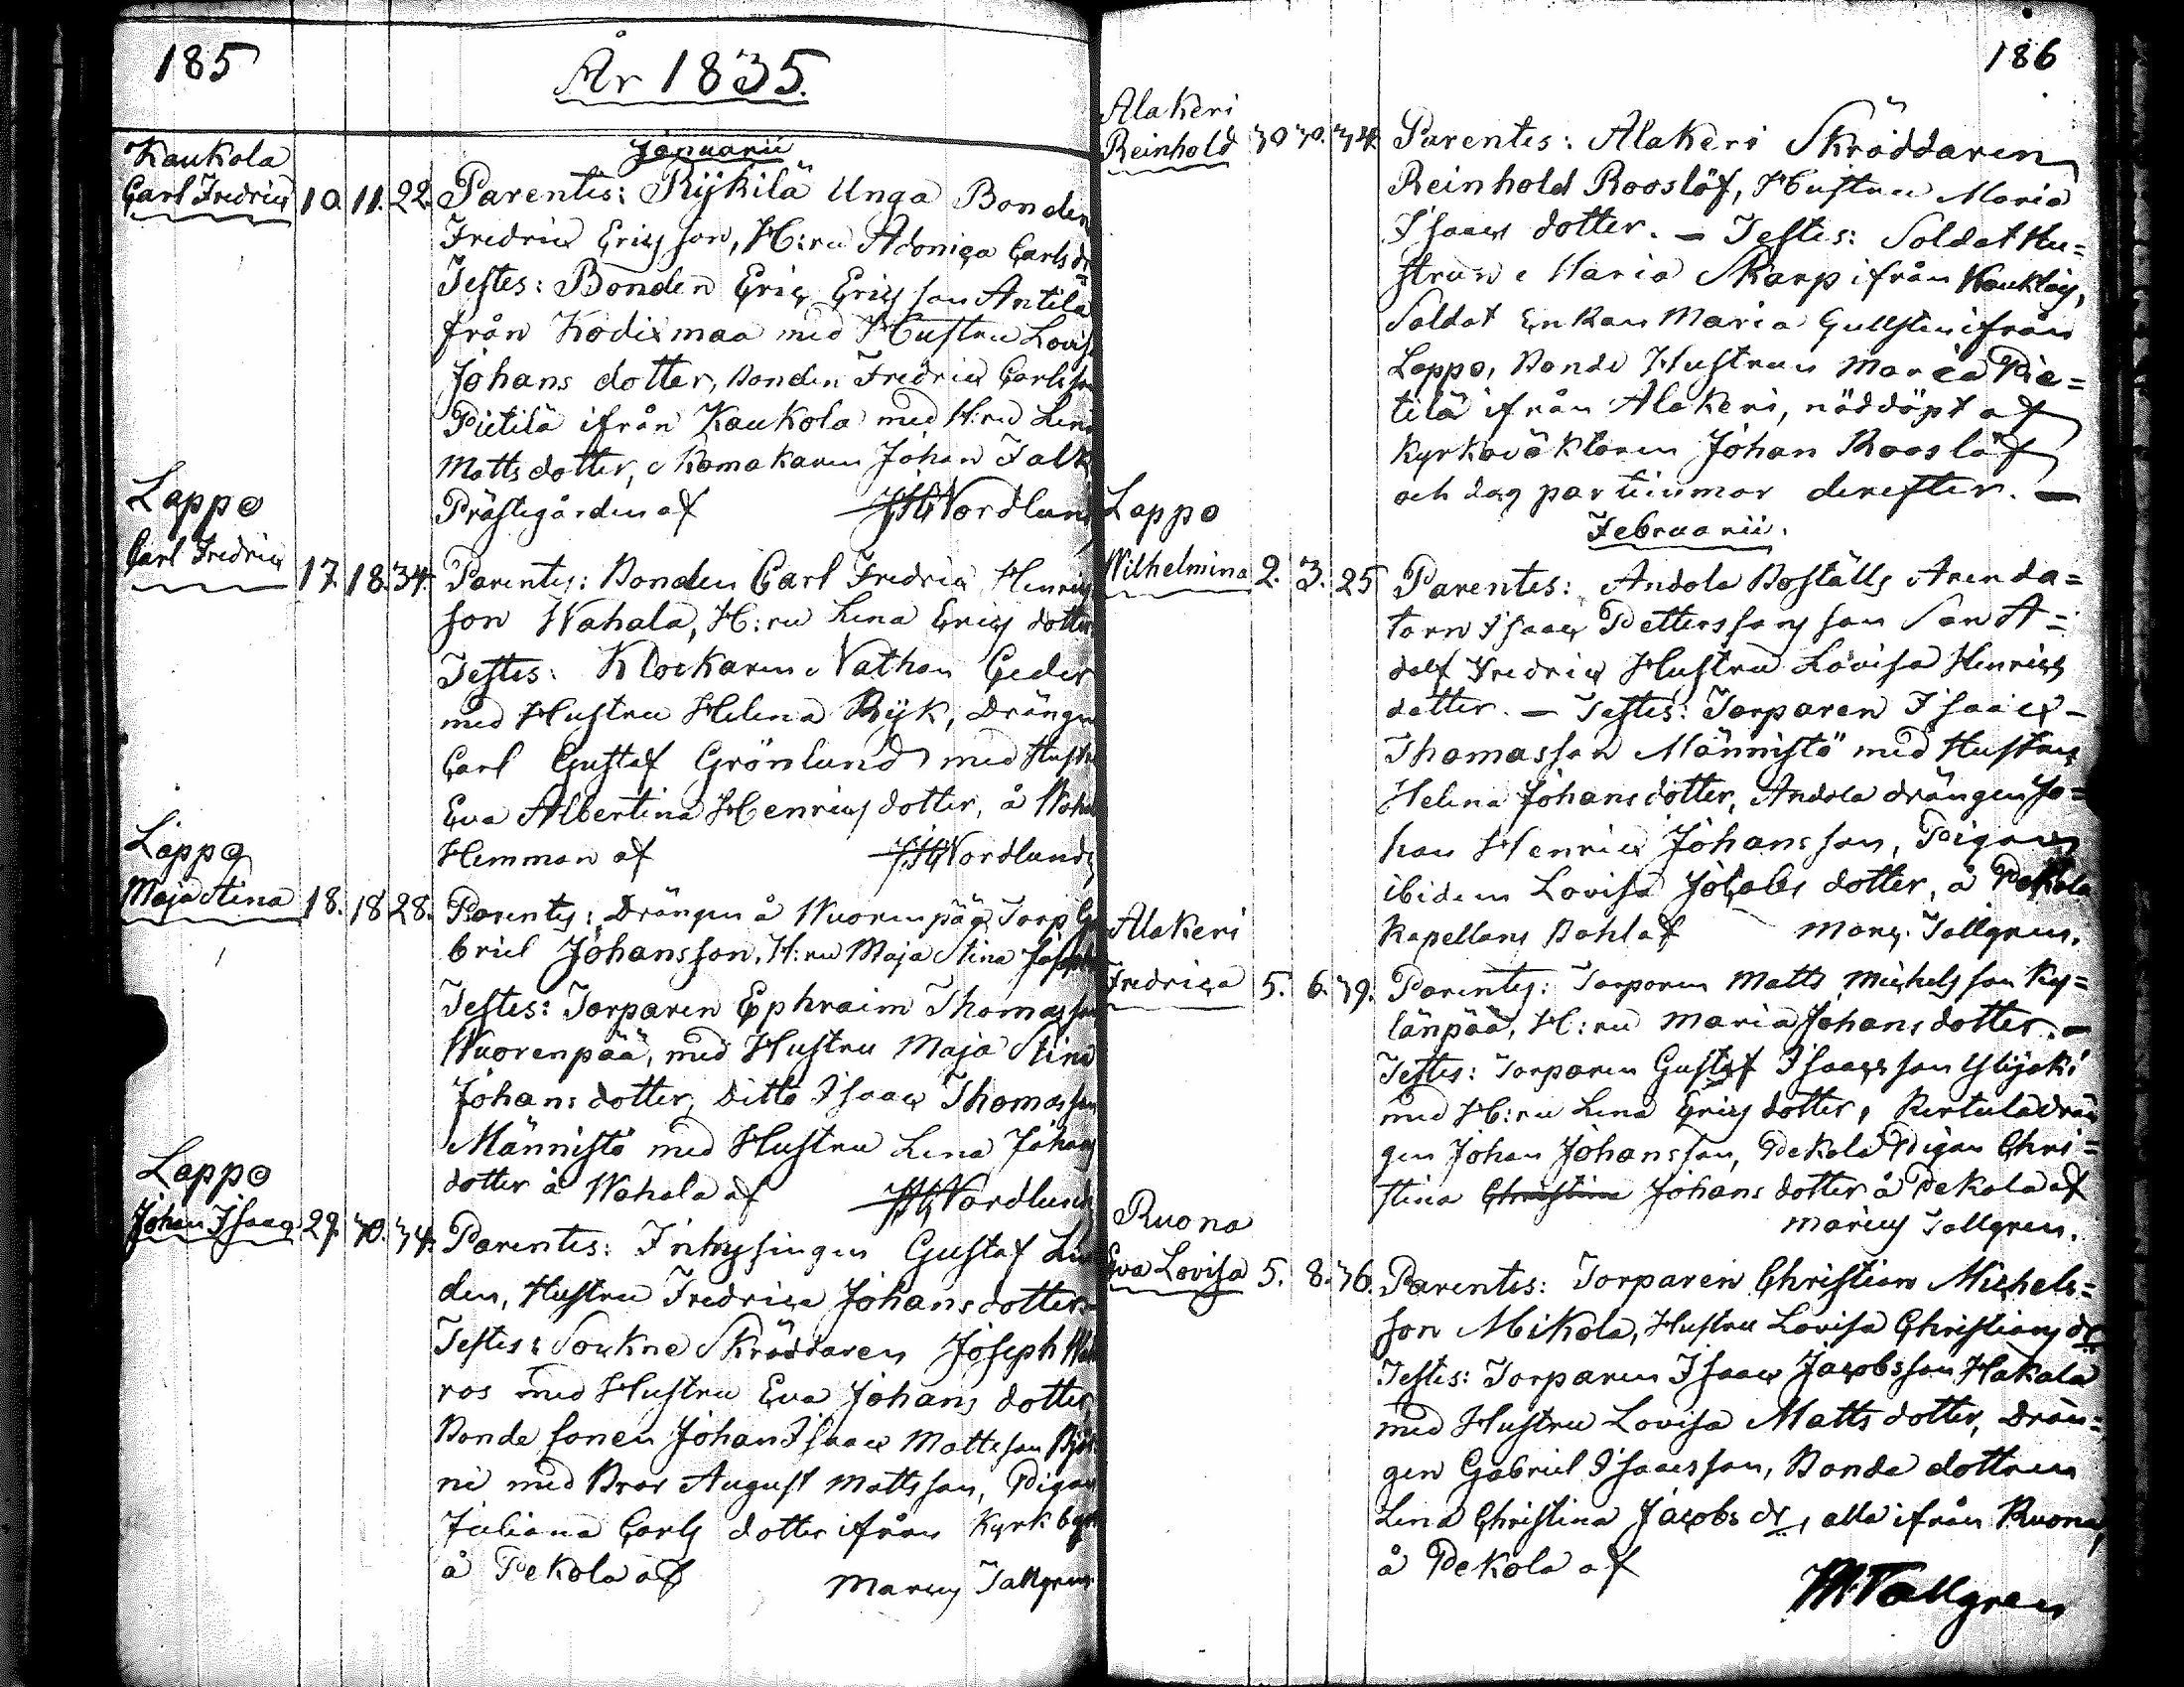 185
År 1835.
Januarii
Kaukola
Carl Fredric 10. 11. 22. Parentes: Rijkilä Unga Bonden
Fredric Ericsson, H:ru Adonica Carlsdr
Testes: Bonden Eric Ericsson Antila
från Kodixmaa med Hustru Lovisa
Johans dotter, Bonden Fredric Carlsson
Pietilä ifrån Kaukola med H:ru Lena
Mattsdotter, Skomakaren Johan Falk
Prästegården af JHNordlund
Lappo
Carl Fredric 17. 18. 34. Parentes: Bonden Carl Fredric Henrics
son Wahala, H:ru Lena Erics dotter
Testes: Klockaren Nathan Ceder
med Hustru Helena Rijk, Drängen
Carl Gustaf Grönlund med Hustru
Eva Albertina Henrics dotter, å Waha
Hemman af JHNordlund
Lappo
Maja Stina 18. 18 28. Parentes: Drängen å Wuorenpää Torp Ga
briel Johansson, H:ru Maja Stina Josephs
Testes: Torparen Ephraim Thomasson
Wuorenpää, med Hustru Maja Stina
Johans dotter, ditto Isaac Thomasson
Männistö med Hustru Lena Johans
dotter å Wahala af JHNordlund
Lappo
Johan Isaac 29. 30. 34. Parentes: Inhysingen Gustaf Lin
den, Hustru Fredrica Johans dotter
Testes: Sockne Skräddaren Joseph
ros med Hustru Eva Johans dotter
Bonde sonen Johan Isaac Mattsson
ni med Bror August Mattsson, Pigan
Juliana Carls dotter ifrån Kyrkbyn
å Pekola af Marcus Tallgren
186
Alakeri
Reinhold 30 30. 34. Parentes: Alakeri Skräddaren
Reinhold Rooslöf, Hustru Maria
Isaacs dotter. — Testes: Soldat Hu=
strun Maria Skarp ifrån
Soldat Enkan Maria Gullsten ifrån
Lappo, Bonde Hustrun Maria Pie=
tilä ifrån Alakeri, nöddöpt af
Kyrkoväktaren Johan Rooslöf
och dog par timmar derefter. —
Februarii.
Lappo
Wilhelmina 2. 3. 25 Parentes: Andola Boställs Arenda=
torn Isaac Petterssons son San A=
dolf Fredric Hustru Lovisa Henrics
dotter. — Testes: Torparen Isaac
Thomasson Männistö med Hustru
Helena Johansdotter, Andola drängen Jo=
han Henric Johansson, Pigan
ibidem Lovisa Jacobs dotter, å Pekola
Kapellans Bohl af Marc. Tallgren.
Alakeri
Fredrica 5. 6. 39. Parentes: Torparen Matts Michelsson Ky=
länpää, H:ru Maria Johans dotter. —
Testes: Torparen Gustaf Isaacsson Ylijoki
med H:ru Lena Erics dotter, Pertula drän
gen Johan Johansson, Pekola Pigan Chri=
stina Christina Johans dotter å Pekola af
Marcus Tallgren.
Ruona
Eva Lovisa 5. 8. 36. Parentes: Torparen Christian Michels=
son Mikola, Hustru Lovisa Christians dr
Testes: Torparen Isaac Jacobsson Hakala
med Hustru Lovisa Matts dotter, Drän=
gen Gabriel Isaacsson, Bonde dottren
Lena Christina Jacobs dr, alla ifrån Ruona,
å Pekola af
M:Tallgren